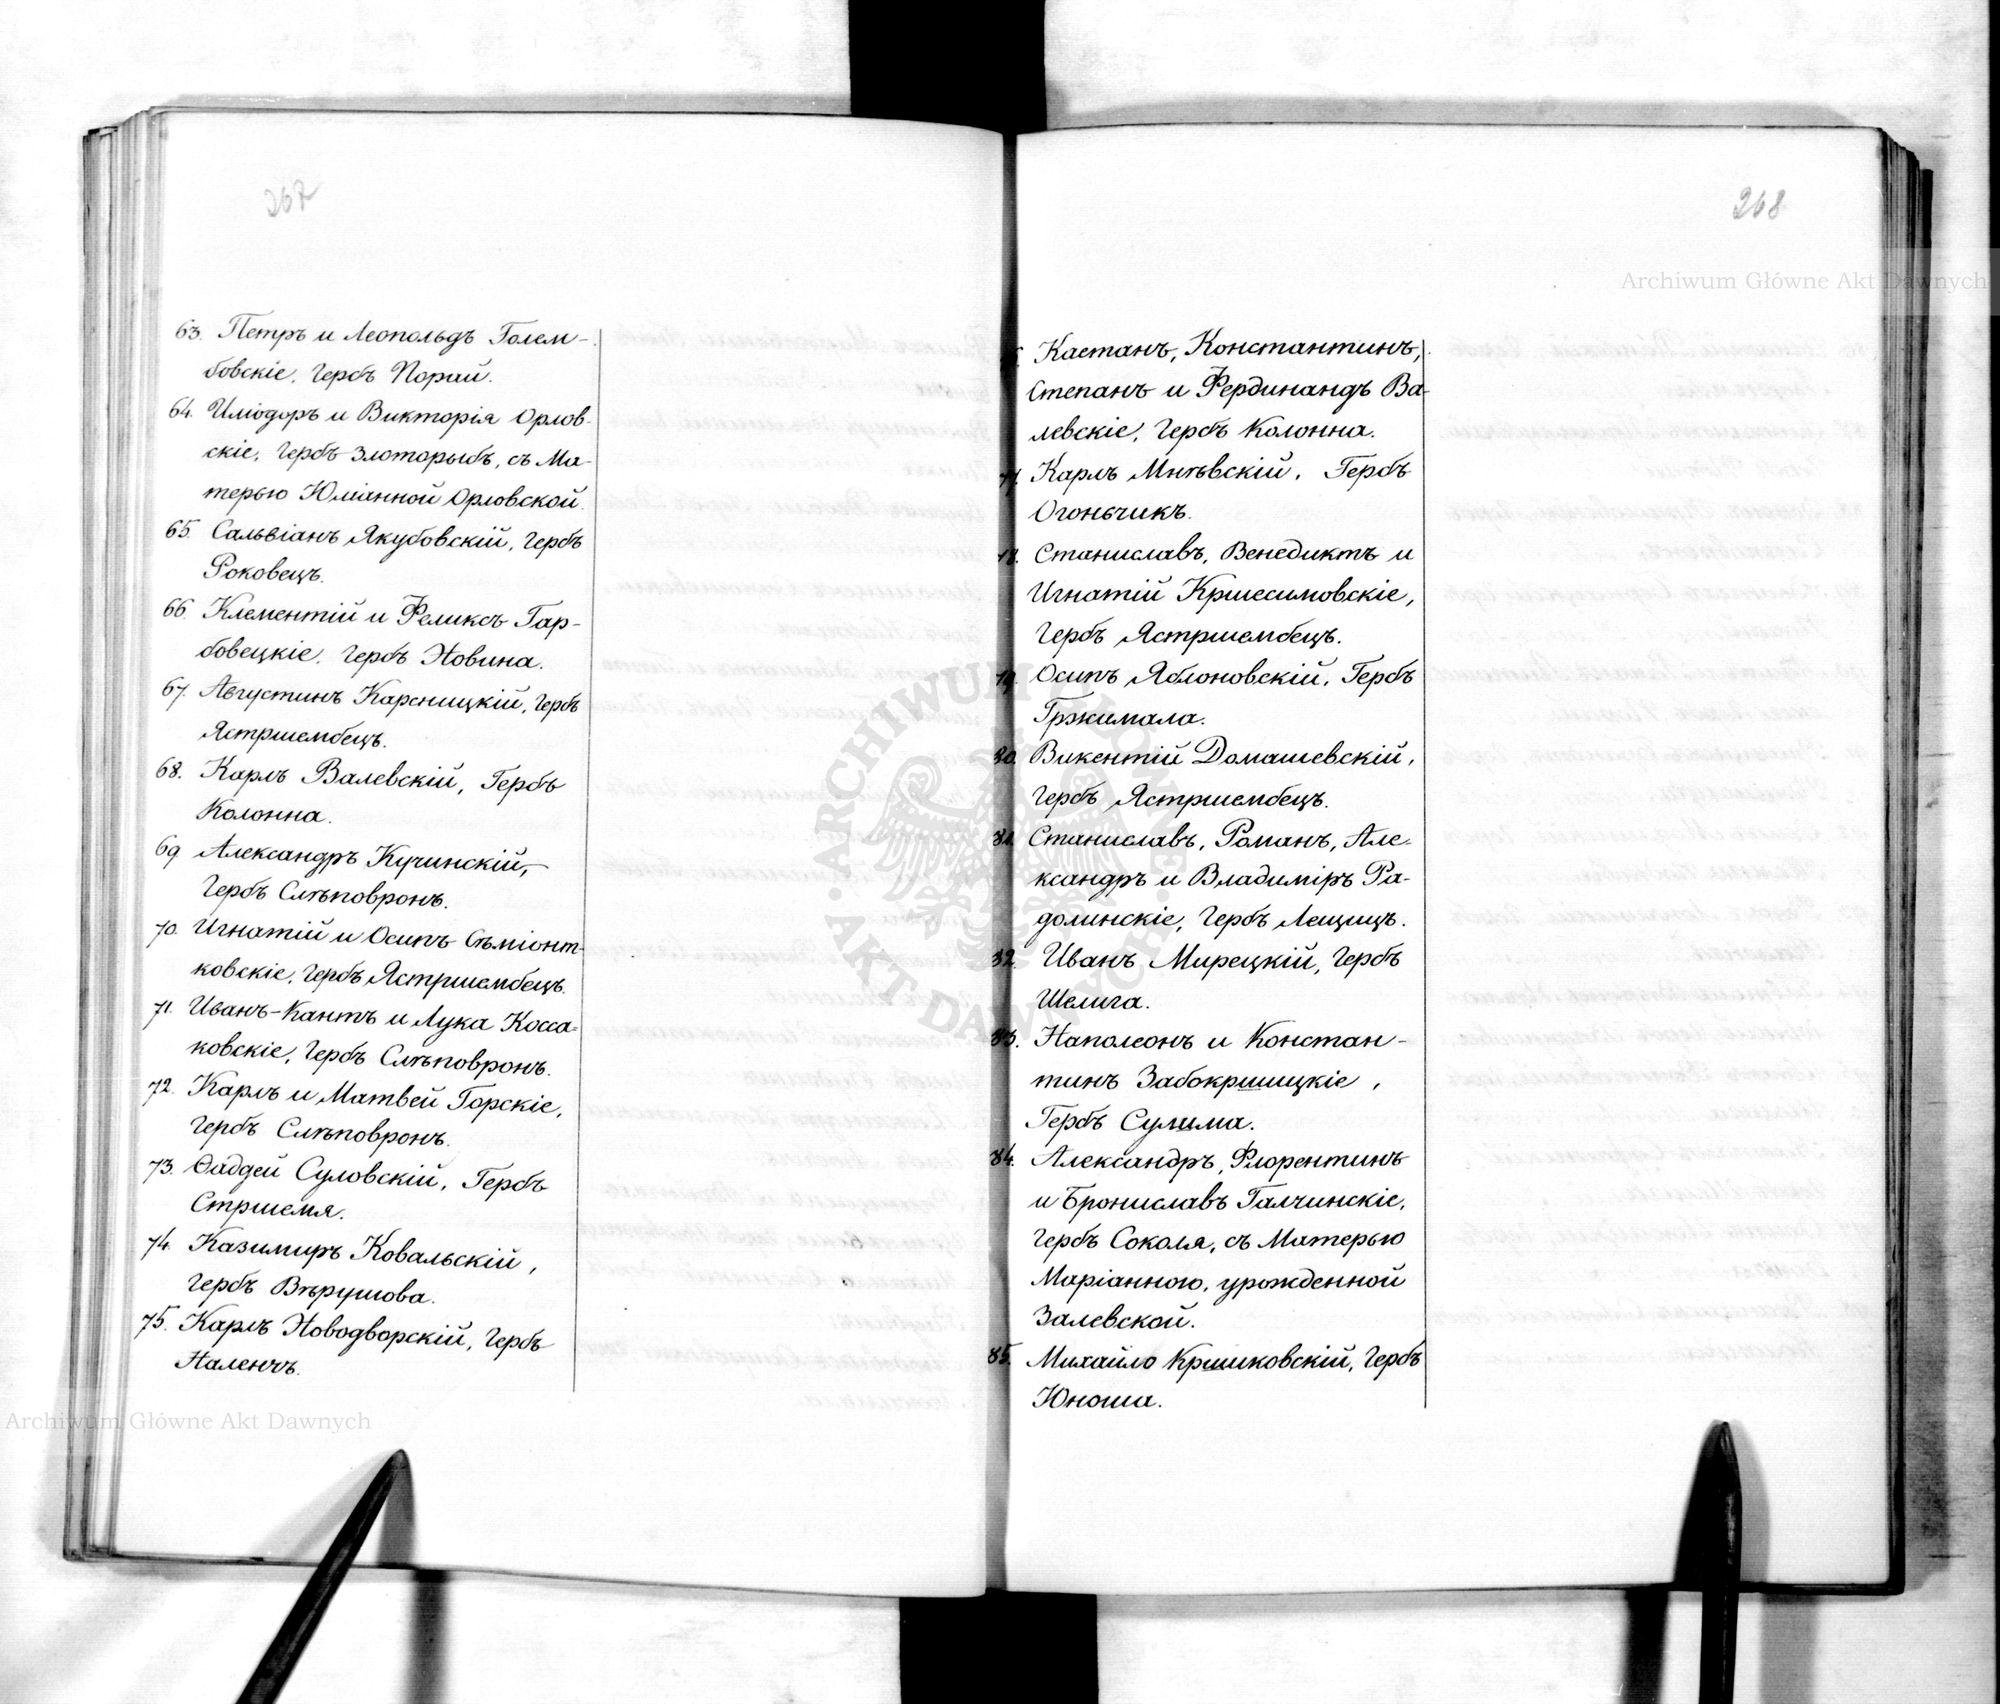 267
63. Петръ и Леопольдъ Голем-
бовскіе, Гербъ Порай.
64. Иліодоръ и Викторія Орлов-
скіе, Гербъ Злоторыбъ, съ Ма-
терью Юліанной Орловской.
65. Сальвіанъ Якубовскій, Гербъ
Роковецъ.
66. Клементій и Феликсъ Гар-
бовецкіе, Гербъ Новина.
67. Августинъ Карсницкій, Гербъ
Ястршембецъ.
68. Карлъ Валевскій, Гербъ
Колонна.
69 Александръ Кучинскій,
Гербъ Слѣповронъ.
70. Игнатій и Осипъ Сѣміонт-
ковскіе, Гербъ Ястршембецъ.
71. Иванъ-Кантъ и Лука Косса-
ковскіе, Гербъ Слѣповронъ.
72. Карлъ и Матвей Горскіе,
Гербъ Слѣповронъ.
73. Ѳаддей Суловскій, Гербъ
Стршемя.
74. Казимиръ Ковальскій,
Гербъ Вѣрушова.
75. Карлъ Новодворскій, Гербъ
Наленчъ.
268
Каетанъ, Константинъ,
Степанъ и Фердинандъ Ва-
левскіе, Гербъ Колонна.
Карлъ Мнѣвскій, Гербъ
Огоньчикъ.
78. Станиславъ, Венедиктъ и
Игнатій Кршесимовскіе,
Гербъ Ястршембецъ.
79. Осипъ Яблоновскій, Гербъ
Гржимала.
80. Викентій Домашевскій,
Гербъ Ястршембецъ.
81. Станиславъ, Романъ, Але-
ксандръ и Владиміръ Ра-
долинскіе, Гербъ Лещицъ.
82. Иванъ Мирецкій, Гербъ
Шелига.
83. Наполеонъ и Констан-
тинъ Забокршицкіе,
Гербъ Сулима.
84. Александръ, Флорентинъ
и Брониславъ Галчинскіе,
Гербъ Сокола, съ Матерью
Маріанною, урожденной
Залевской.
85. Михайло Кршиковскій, Гербъ
Юноша.
Archiwum Główne Akt Dawnych
Archiwum Główne Akt Dawnych
ARCHIWUM GŁÓWNE
AKT DAWNYCH